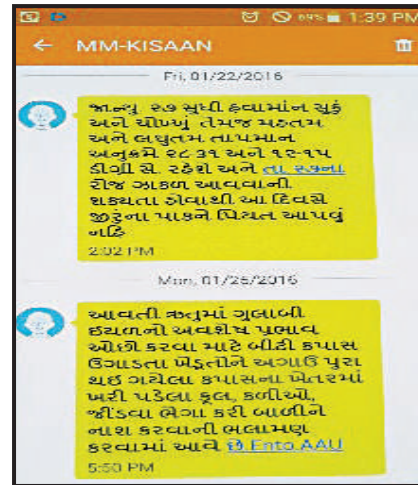 69% 1:39 PM
← MM-KISAAN
Fri, 01/22/2016
જાન્યુ ૨૭ સુધી હવામાંન સુકું
અને ચોખ્ખું તેમજ મહતમ
અને લઘુતમ તાપમાન
અનુક્રમે ૨૮ ૩૧ અને ૧૨-૧૫
ડીગ્રી સે. રહેશે અને તા
રોજ ઝાકળ આવવાની
શક્યતા હોવાથી આ દિવસે
જીરુંના પાકને પિયત આપવું
નહિ
2:02 PM
Mon, 01/25/2016
આવતી ઋતુમાં ગુલાબી
ઇયળનો અવશેષ પ્રભાવ
ઓછી કરવા માટે બીટી કપાસ
ઉગાડતા ખેડૂતોને અગાઉ પુરા
થઇ ગયેલા કપાસના ખેતરમાં
ખરી પડેલા ફૂલ, કળીઓ,
જીંડવા ભેગા કરી બાળીને
નાશ કરવાની ભલામણ
કરવામાં આવે છે Ento.AAU
5:50 PM